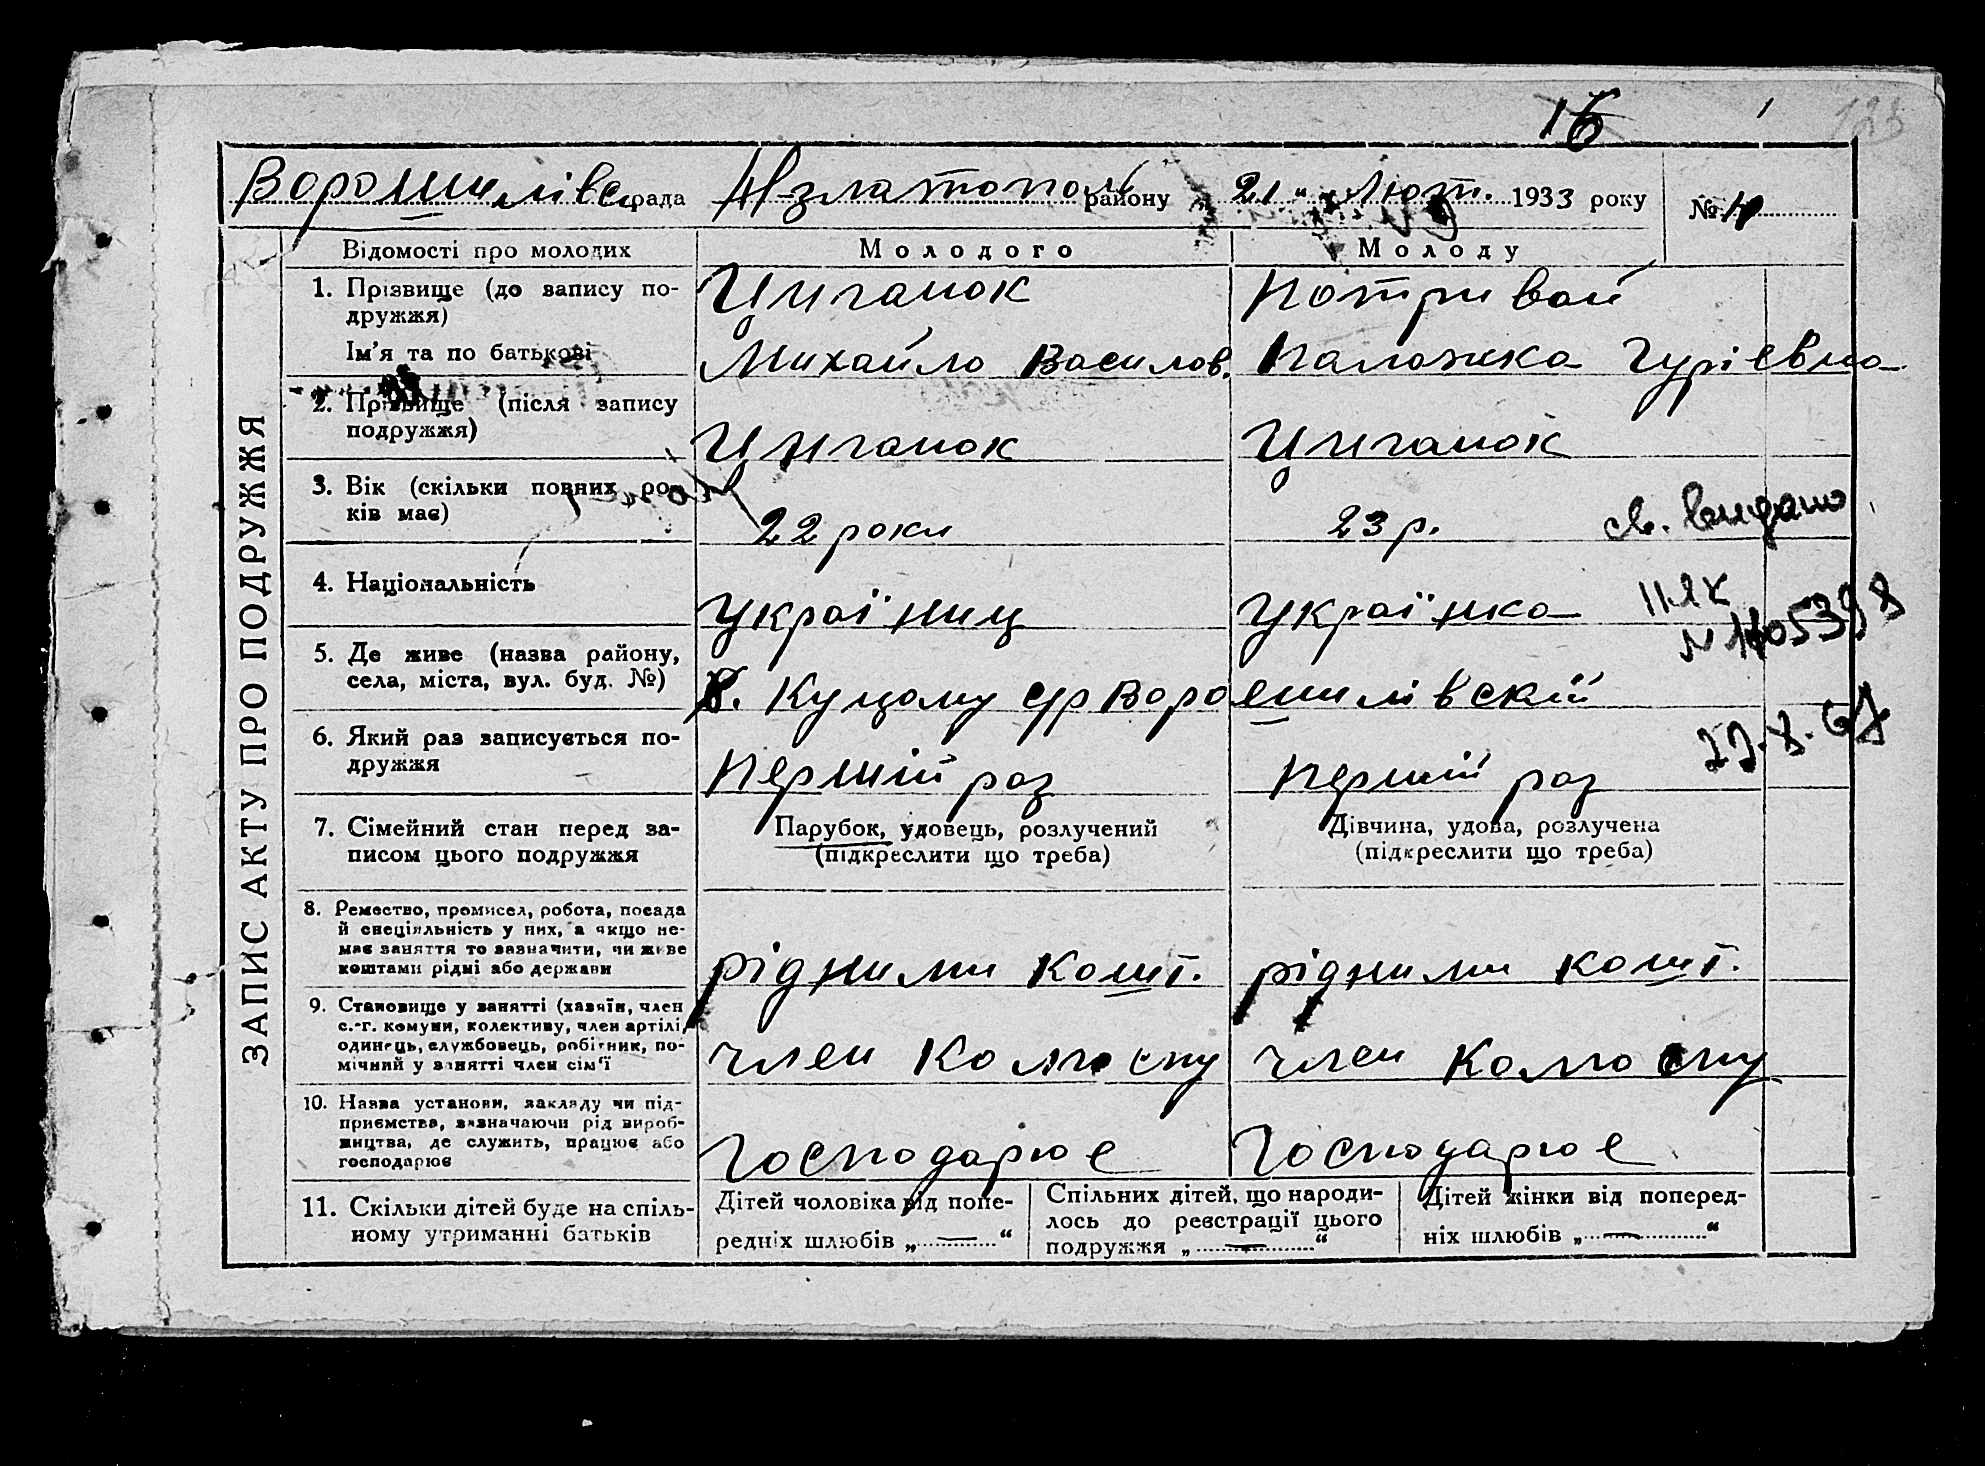 16
123
Ворошилівс рада Н-златопол району 21 " Лют. 1933 року № 4
ЗАПИС АКТУ ПРО ПОДРУЖЖЯ
Відомості про молодих Молодого Молоду
1. Прізвище (до запису по- Циганок Потривай
дружжя)
Ім'я та по батькові Михайло Василов. Палажка Гуріевна
2. Прізвище (після запису
подружжя) Циганок Циганок
3. Вік (скільки повних ро-
ків має) 22 роки 23 р. св. видано
4. Національність Україниц Українка
N 1105398
5. Де живе (назва району,
села, міста, вул. буд. №) в. Куцому с/р Ворошилівскій
22.X.67
6. Який раз записується по-
дружжя Перший раз Перший раз
7. Сімейний стан перед за- Парубок, удовець, розлучений Дівчина, удова, розлучена
писом цього подружжя (підкреслити що треба) (підкреслити що треба)
8. Ремество, промисел, робота, посада
й спеціяльність у них, а якщо не-
має заняття то зазначити, чи живе
коштами рідні або держави рідними кошт. рідними кошт.
9. Становище у занятті (хазяїн, член
с.-г. комуни, колективу, член артілі,
одинець, службовець, робітник, по-
мічний у занятті член сім'ї член колгоспу член колгоспу
10. Назва установи, закладу чи під-
приємства, зазначаючи рід вироб-
ництва, де служить, працює або
господарює Господарює Господарює
11. Скільки дітей буде на спіль-
ному утриманні батьків
Дітей чоловіка від попе-
редніх шлюбів „ — “
Спільних дітей, що народи-
лось до реєстрації цього
подружжя „ — “
Дітей жінки від поперед-
ніх шлюбів „ — “